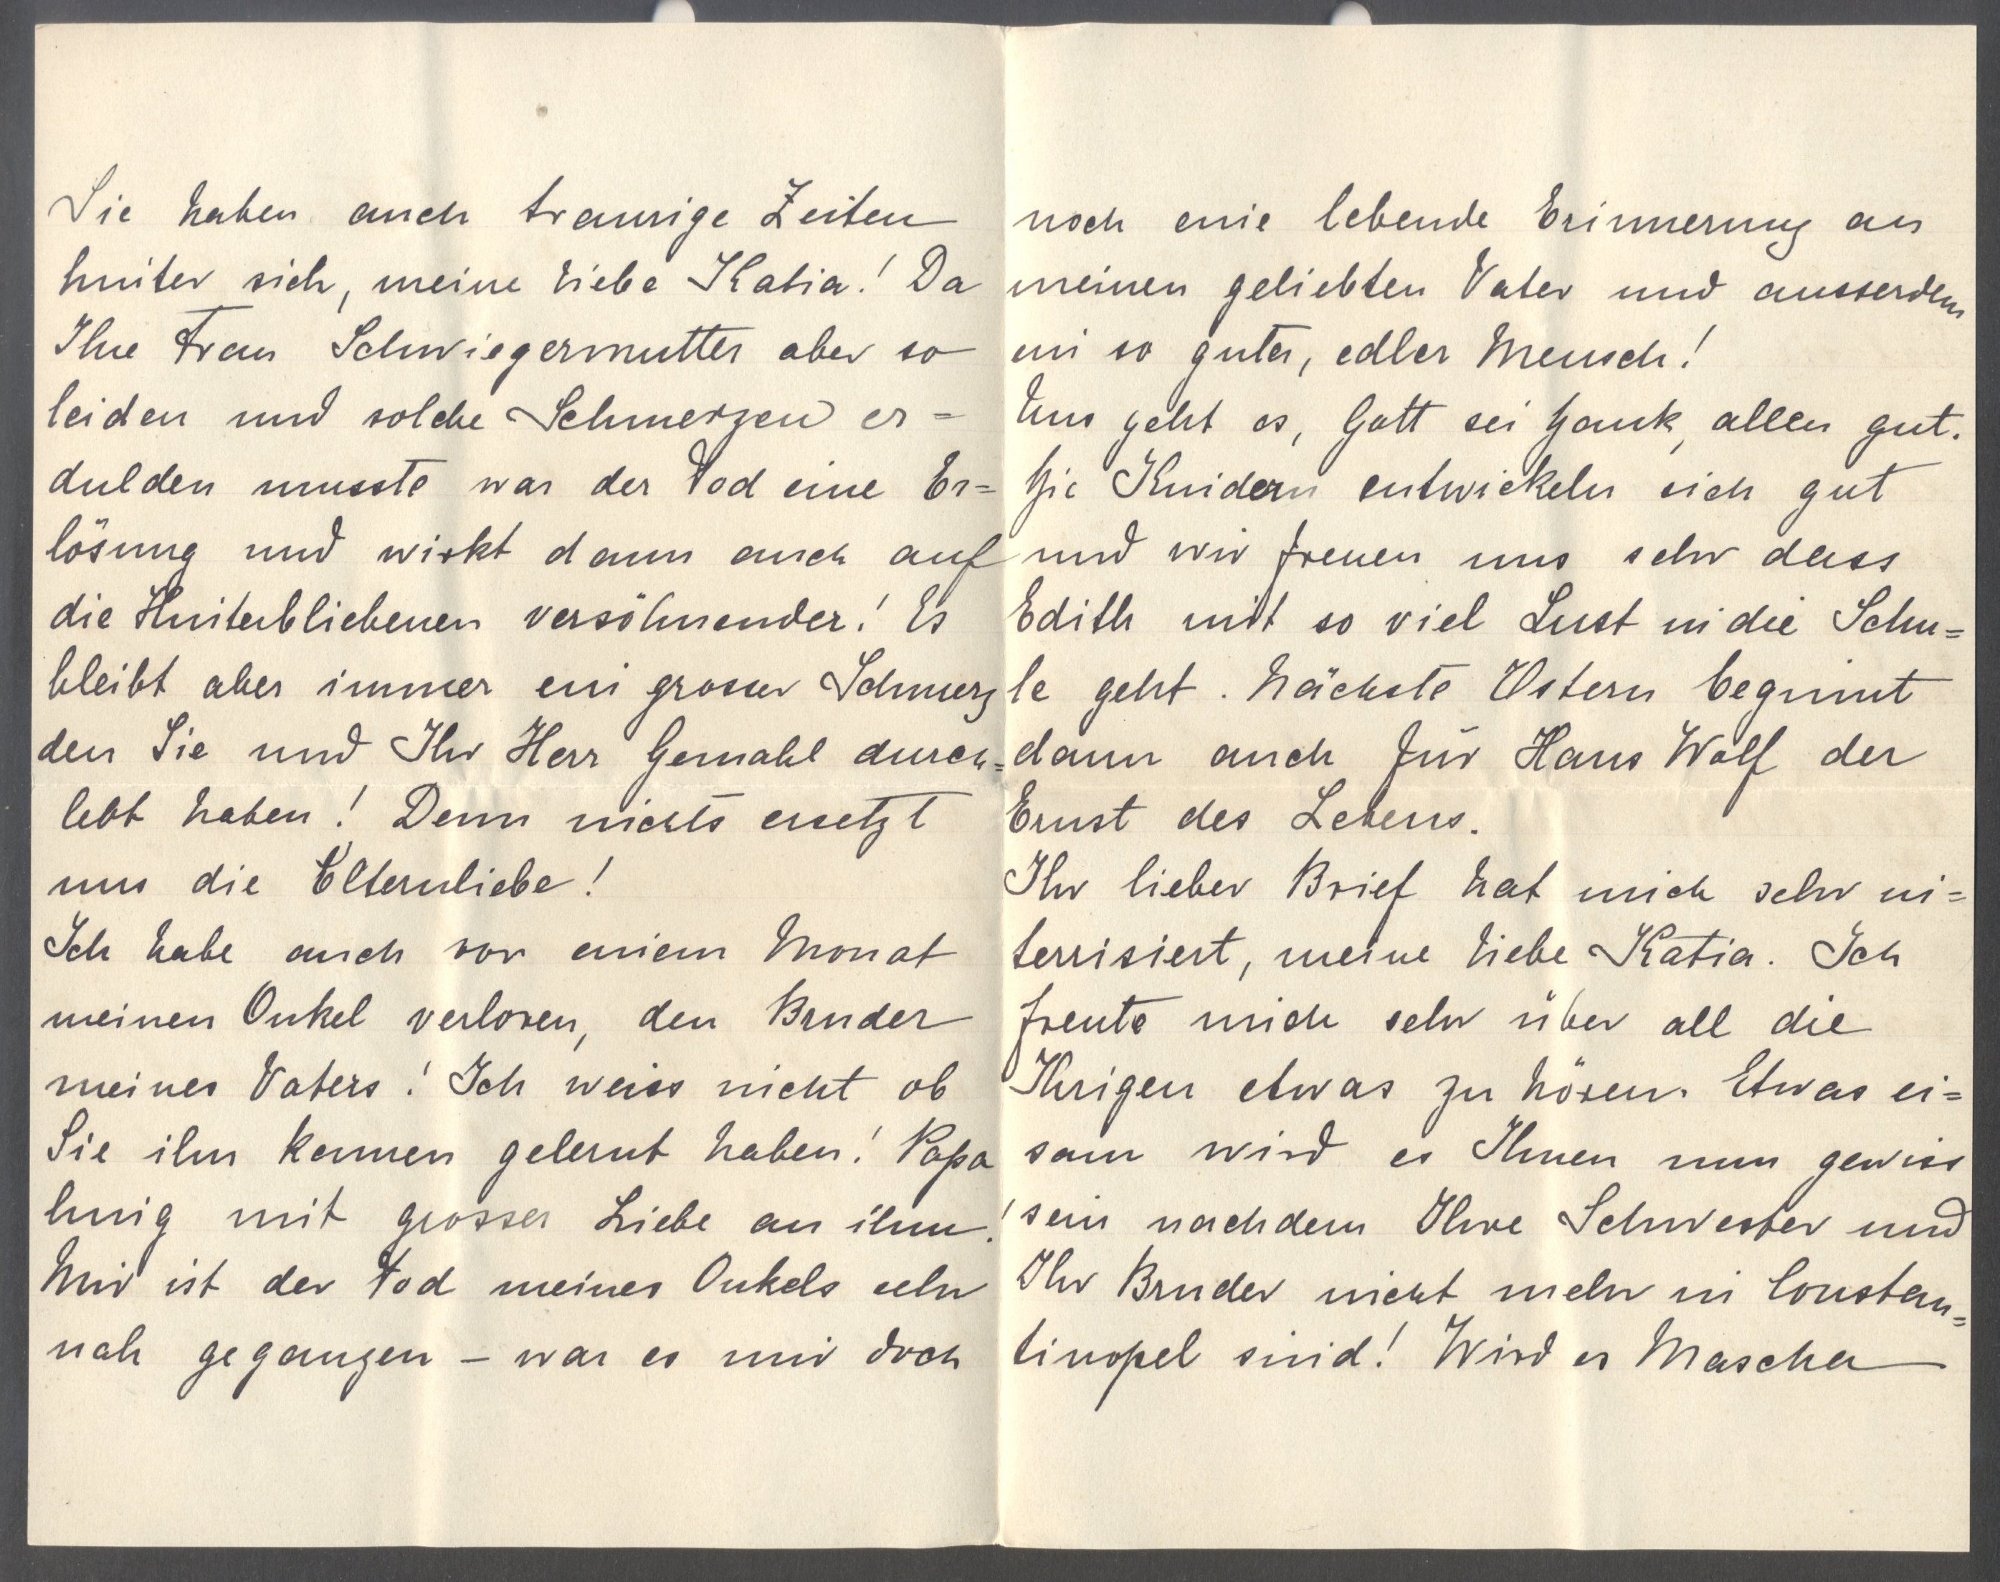 Sie haben auch traurige Zeiten
hinter sich, meine liebe Katia! Da
Ihre Frau Schwiegermutter aber so
leiden und solche Schmerzen er=
dulden musste war der Tod eine Er=
lösung und wirkt dann auch auf
die Hinterbliebenen versöhnender! Es
bleibt aber immer ein grosser Schmerz
den Sie und Ihr Herr Gemahl durch=
lebt haben! Denn nichts ersetzt
uns die Elternliebe!
Ich habe auch vor einem Monat
meinen Onkel verloren, den Bruder
meines Vaters! Ich weiss nicht ob
Sie ihn kennen gelernt haben! Papa
hing mit grosser Liebe an ihm!
Mir ist der Tod meines Onkels sehr
nah gegangen – war es mir doch
noch eine lebende Erinnerung an
meinen geliebten Vater und ausserdem
ein so guter, edler Mensch!
Uns geht es, Gott sei Dank, allen gut.
Die Kindern entwickeln sich gut
und wir freuen uns sehr dass
Edith mit so viel Lust in die Schu=
le geht. Nächste Ostern beginnt
dann auch für Hans Wolf der
Ernst des Lebens.
Ihr lieber Brief hat mich sehr in=
terrisiert, meine liebe Katia. Ich
freute mich sehr über all die
Ihrigen etwas zu hören. Etwas ei=
sam wird es Ihnen nun gewiss
sein nachdem Ihre Schwester und
Ihr Bruder nicht mehr in Constan=
tinopel sind! Wird es Mascha